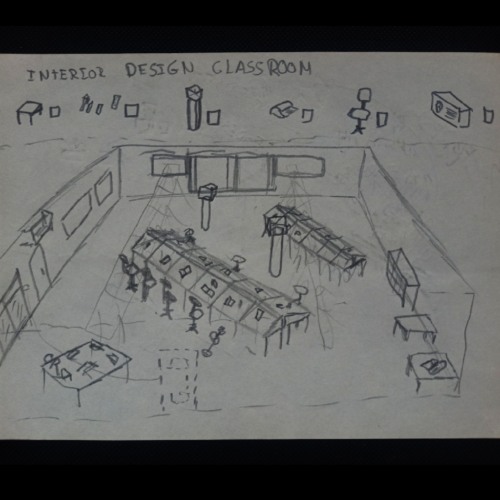 INTERIOR DESIGN CLASSROOM